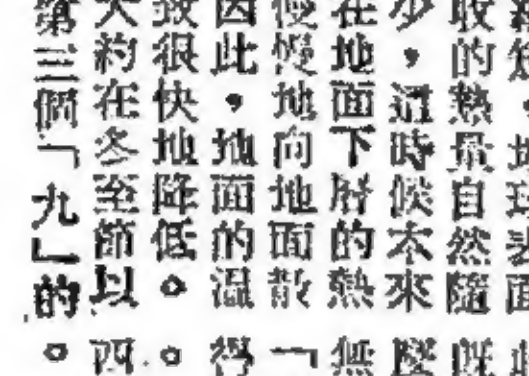 面
收的熱量自然隨既
少，這時候本來
在地面下層的熱無
慢慢地向地面散「
因此，地面的溫得
致很快地降低。。
大約在冬至節以西
第三個「九」的。